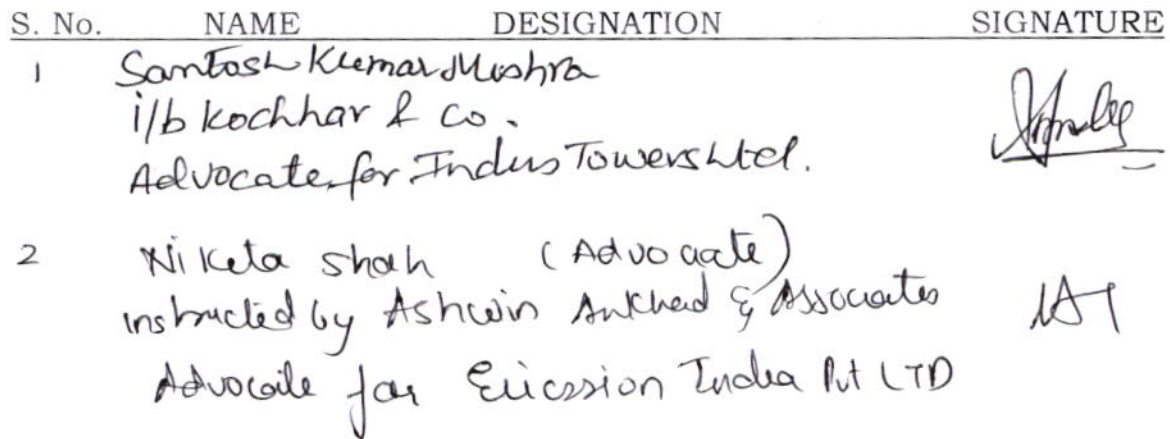 S. No. NAME DESIGNATION SIGNATURE
1 Santosh Kumar Mishra
i/b Kochhar & Co.
Advocate for Indus Towers Ltd.
2 Niketa Shah (Advocate)
instructed by Ashwin Ankhad & Associates
Advocate for Ericssion India Pvt LTD